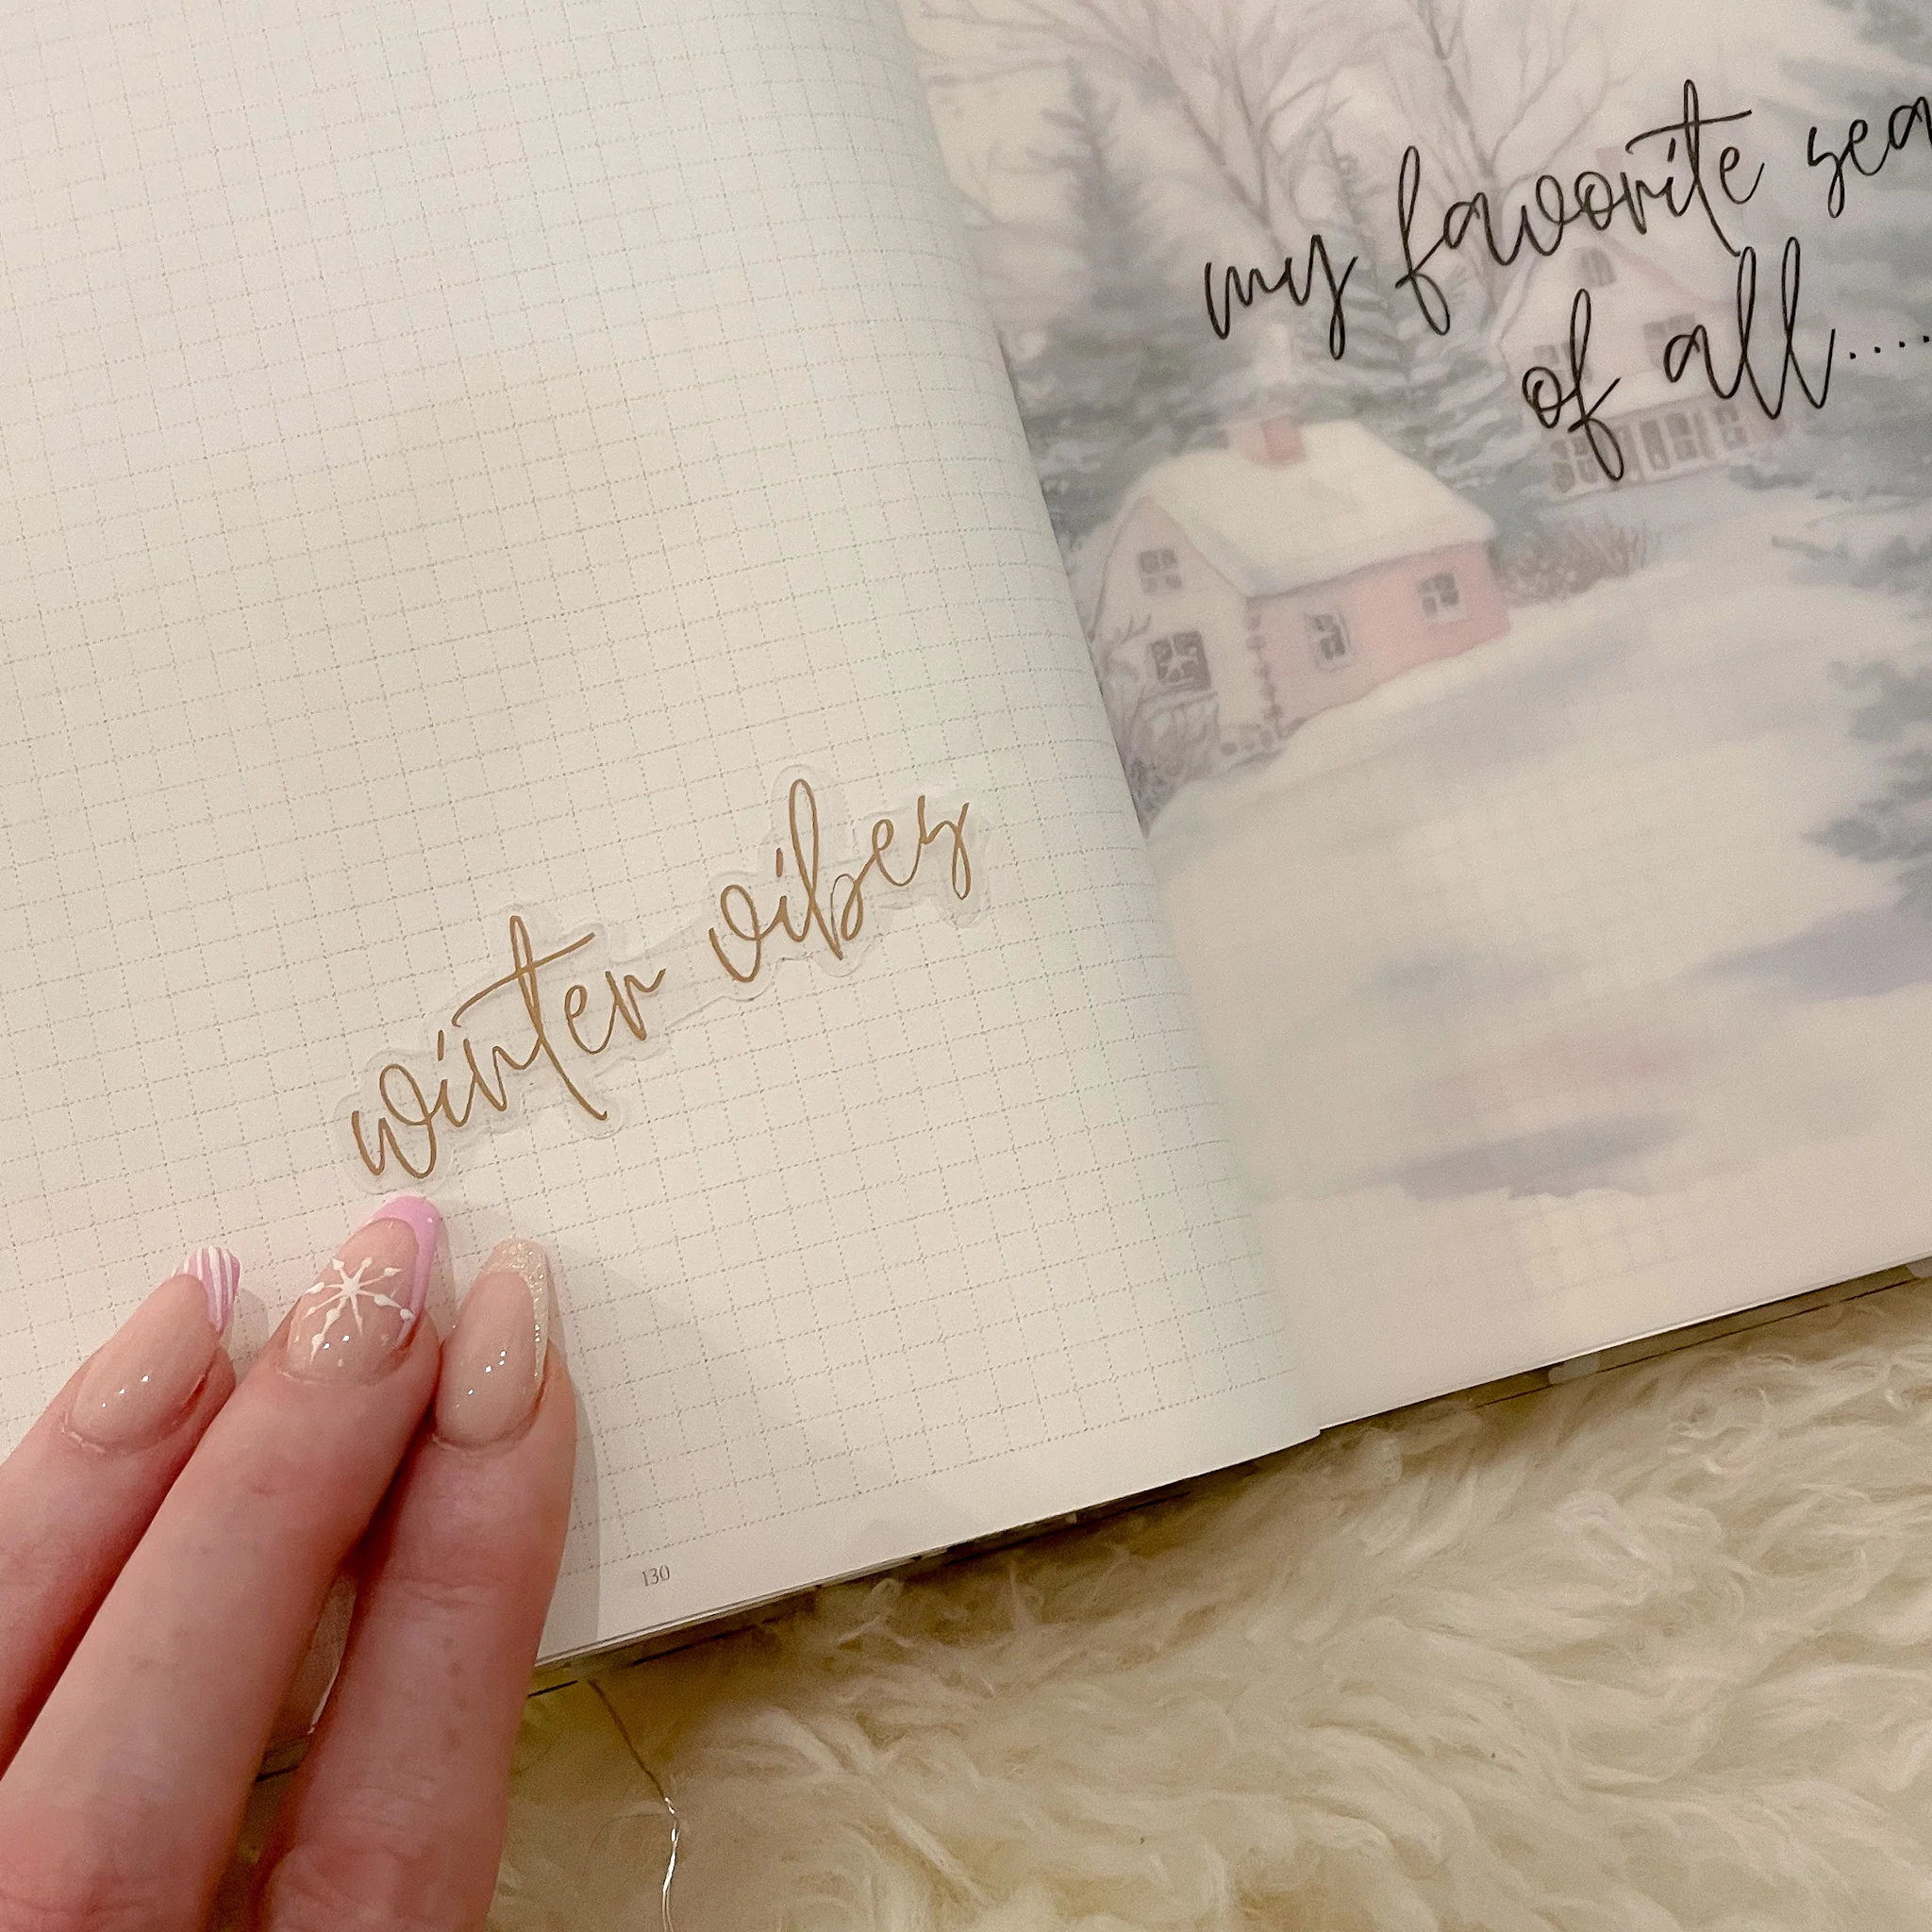 winter vibes
130
my favorite sea
of all....